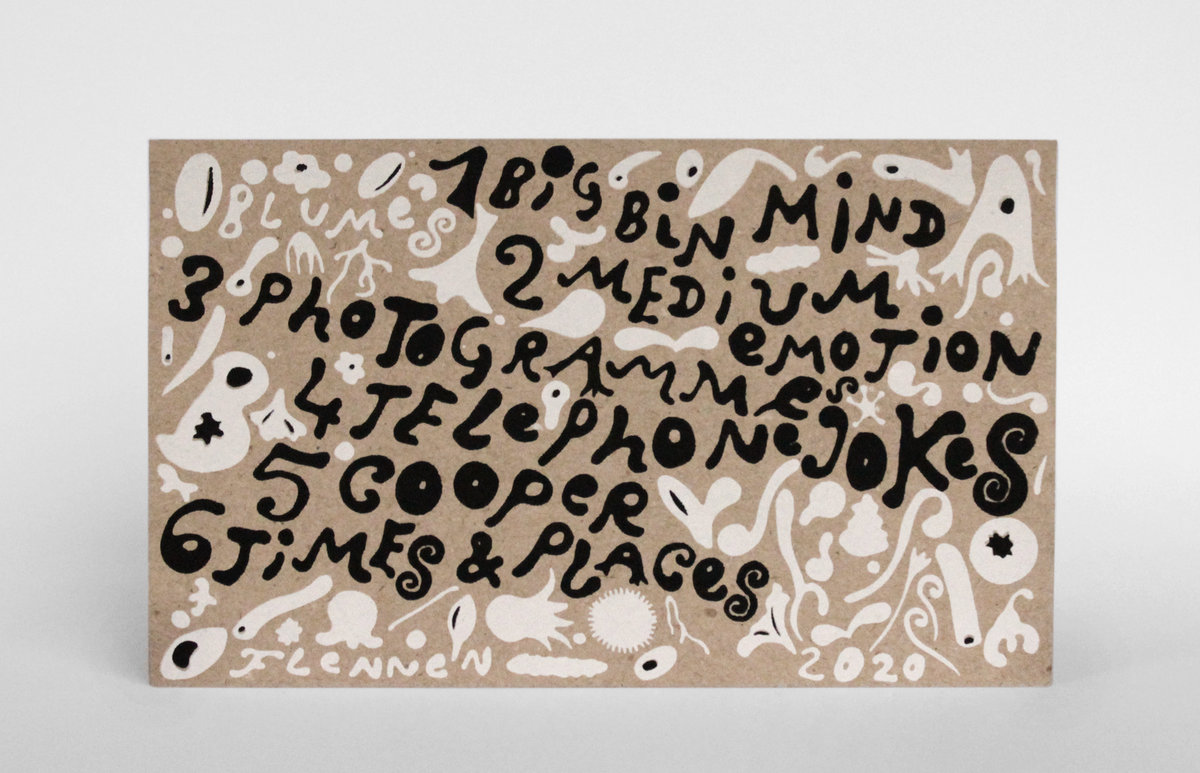 BLUMES
1 BiG BiN MiND
2 MEDiUM EMOTiON
3 PhOTOGRAMMes
4 TELePhONe JOKeS
5 COOPeR
6 TiMES & PLACeS
FLENNEN
2020